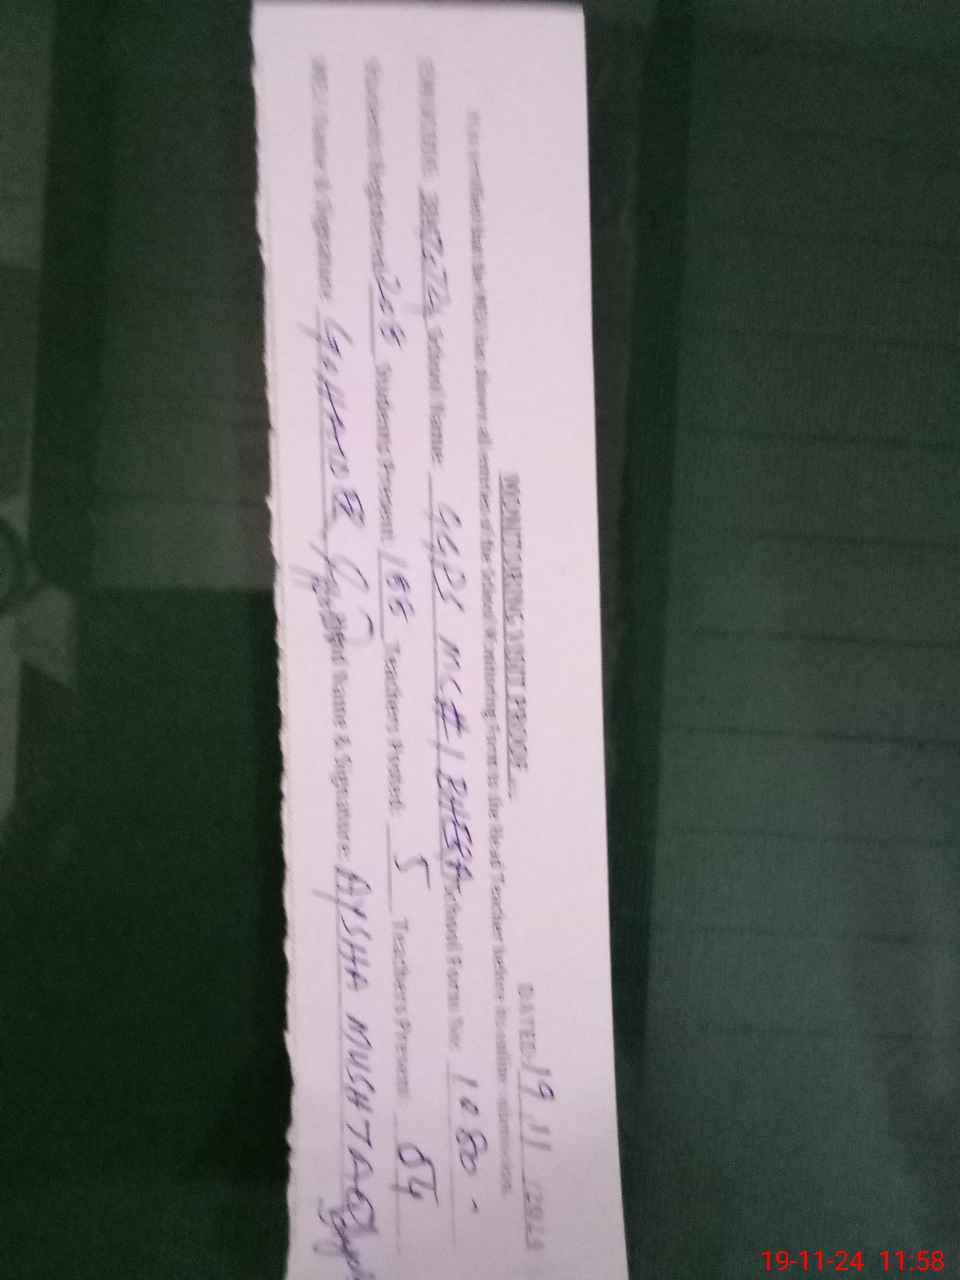 MONITORING VISIT PROOF
DATED: 19 11 /2024
It is certified that the MEA has shown all entries of the School Monitoring Form to the Head Teacher before its online submission.
School Name: GGPS MC # 1 School Form No: 1080
Students Registered: 208 Students Present: 188 Teachers Posted: 5 Teachers Present: 04
Name & Signature: Name & Signature: AYSHA MUSHTAQ
19-11-24 11:58